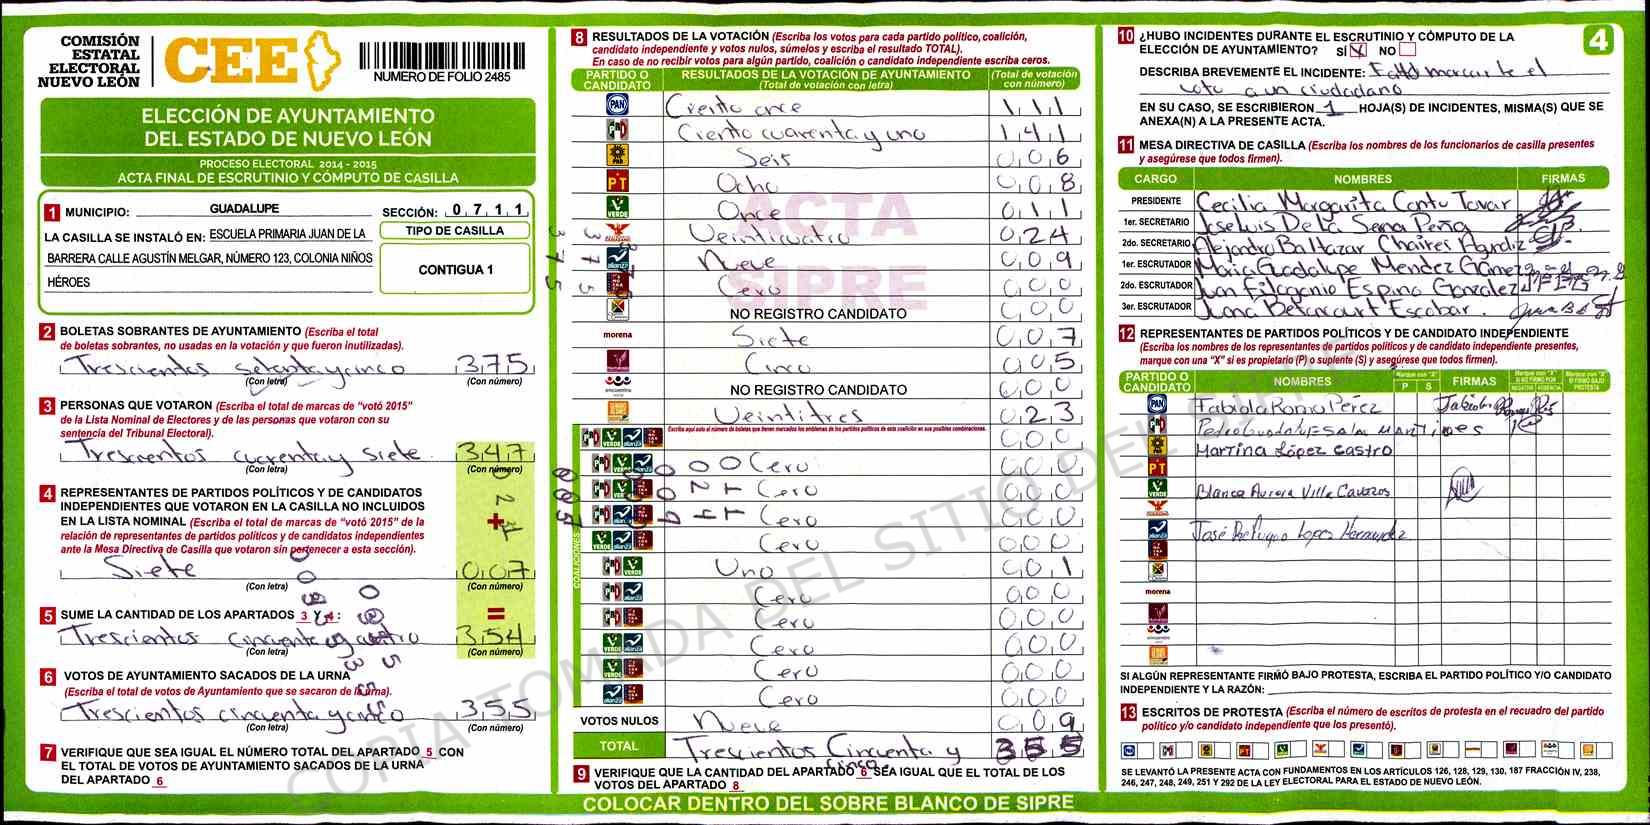 COMISIÓN
ESTATAL
ELECTORAL
NUEVO LEÓN
CEE
NUMERO DE FOLIO 2485
ELECCIÓN DE AYUNTAMIENTO
DEL ESTADO DE NUEVO LEÓN
PROCESO ELECTORAL 2014 - 2015
ACTA FINAL DE ESCRUTINIO Y CÓMPUTO DE CASILLA
1 MUNICIPIO: GUADALUPE SECCIÓN: 0 7 1 1
LA CASILLA SE INSTALÓ EN: ESCUELA PRIMARIA JUAN DE LA
BARRERA CALLE AGUSTÍN MELGAR, NÚMERO 123, COLONIA NIÑOS
HÉROES
TIPO DE CASILLA
CONTIGUA 1
2 BOLETAS SOBRANTES DE AYUNTAMIENTO (Escriba el total
de boletas sobrantes, no usadas en la votación y que fueron inutilizadas).
Trescientos setenta y cinco 375
(Con letra) (Con número)
3 PERSONAS QUE VOTARON (Escriba el total de marcas de "votó 2015"
de la Lista Nominal de Electores y de las personas que votaron con su
sentencia del Tribunal Electoral).
Trescientos cuarenta y siete 347
(Con letra) (Con número)
4 REPRESENTANTES DE PARTIDOS POLÍTICOS Y DE CANDIDATOS
INDEPENDIENTES QUE VOTARON EN LA CASILLA NO INCLUIDOS
EN LA LISTA NOMINAL (Escriba el total de marcas de "votó 2015" de la
relación de representantes de partidos políticos y de candidatos independientes
ante la Mesa Directiva de Casilla que votaron sin pertenecer a esta sección).
+
Siete 007
(Con letra) (Con número)
5 SUME LA CANTIDAD DE LOS APARTADOS 3 Y 4: =
Trescientos cincuenta y cuatro 354
(Con letra) (Con número)
6 VOTOS DE AYUNTAMIENTO SACADOS DE LA URNA
(Escriba el total de votos de Ayuntamiento que se sacaron de la urna).
Trescientos cincuenta y cinco 355
(Con letra) (Con número)
7 VERIFIQUE QUE SEA IGUAL EL NÚMERO TOTAL DEL APARTADO 5 CON
EL TOTAL DE VOTOS DE AYUNTAMIENTO SACADOS DE LA URNA
DEL APARTADO 6
8 RESULTADOS DE LA VOTACIÓN (Escriba los votos para cada partido político, coalición,
candidato independiente y votos nulos, súmelos y escriba el resultado TOTAL).
En caso de no recibir votos para algún partido, coalición o candidato independiente escriba ceros.
PARTIDO O CANDIDATO RESULTADOS DE LA VOTACIÓN DE AYUNTAMIENTO (Total de votación con letra) (Total de votación con número)
PAN Ciento once 111
PRI Ciento cuarenta y uno 141
PRD Seis 006
PT Ocho 008
VERDE Once 011
Veinticuatro 024
alianza Nueve 009
Cero 000
NO REGISTRO CANDIDATO 000
morena Siete 007
Cinco 005
encuentro NO REGISTRO CANDIDATO 000
Veintitres 023
COALICIONES
Escriba aquí solo el número de boletas que tienen marcados los emblemas de los partidos políticos de esta coalición en sus posibles combinaciones.
000
Cero 000
Cero 000
Cero 000
Cero 000
Uno 001
Cero 000
Cero 000
Cero 000
Cero 000
Cero 000
VOTOS NULOS Nueve 009
TOTAL Trescientos Cincuenta y cinco 355
9 VERIFIQUE QUE LA CANTIDAD DEL APARTADO 6 SEA IGUAL QUE EL TOTAL DE LOS
VOTOS DEL APARTADO 8
COLOCAR DENTRO DEL SOBRE BLANCO DE SIPRE
ACTA
SIPRE
COPIA TOMADA DEL SITIO DEL SIPRE
10 ¿HUBO INCIDENTES DURANTE EL ESCRUTINIO Y CÓMPUTO DE LA
ELECCIÓN DE AYUNTAMIENTO? SÍ X NO
4
DESCRIBA BREVEMENTE EL INCIDENTE: Falto marcarle el
voto a un ciudadano
EN SU CASO, SE ESCRIBIERON 1 HOJA(S) DE INCIDENTES, MISMA(S) QUE SE
ANEXA(N) A LA PRESENTE ACTA.
11 MESA DIRECTIVA DE CASILLA (Escriba los nombres de los funcionarios de casilla presentes
y asegúrese que todos firmen).
CARGO NOMBRES FIRMAS
PRESIDENTE Cecilia Margarita Cantu Tovar
1er. SECRETARIO Jose Luis De La Serna Peña
2do. SECRETARIO Alejandro Baltazar Chaires
1er. ESCRUTADOR Maria Guadalupe Mendez Gamez
2do. ESCRUTADOR Juan Filogonio Espino Gonzalez
3er. ESCRUTADOR Juana Betancourt Escobar
12 REPRESENTANTES DE PARTIDOS POLÍTICOS Y DE CANDIDATO INDEPENDIENTE
(Escriba los nombres de los representantes de partidos políticos y de candidato independiente presentes,
marque con una "X" si es propietario (P) o suplente (S) y asegúrese que todos firmen).
PARTIDO O CANDIDATO NOMBRES P S FIRMAS
PAN Fabiola Romo Pérez
PRI Pedro Guadalupe Salas Martines
PRD Martina López Castro
PT
VERDE Blanca Aurora Villa Cavazos
José Refugio Lopez Hernandez
morena
SI ALGÚN REPRESENTANTE FIRMÓ BAJO PROTESTA, ESCRIBA EL PARTIDO POLÍTICO Y/O CANDIDATO
INDEPENDIENTE Y LA RAZÓN:
13 ESCRITOS DE PROTESTA (Escriba el número de escritos de protesta en el recuadro del partido
político y/o candidato independiente que los presentó).
SE LEVANTÓ LA PRESENTE ACTA CON FUNDAMENTOS EN LOS ARTÍCULOS 126, 128, 129, 130, 187 FRACCIÓN IV, 238,
246, 247, 248, 249, 251 Y 292 DE LA LEY ELECTORAL PARA EL ESTADO DE NUEVO LEÓN.